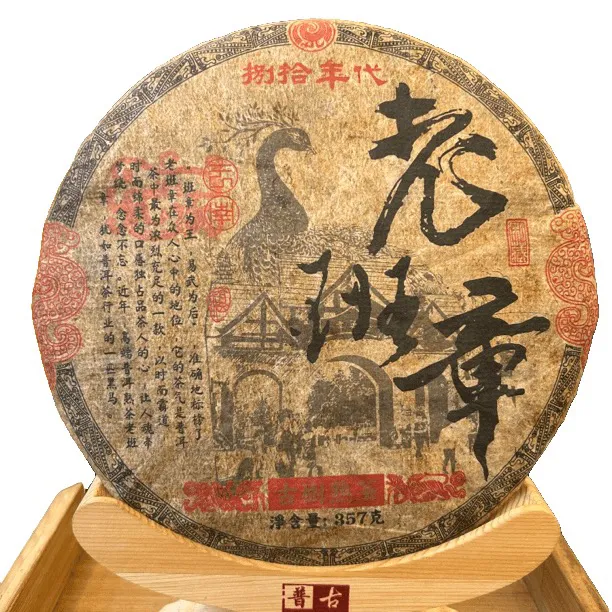 捌拾年代
老班章
“班章为王，易武为后”，准确地标榜了
老班章在众人心中的地位，它的茶气是普洱
茶中最为浓烈 足的一款，以时而霸道，
时而绵柔的口感独占品茶人的心，让人魂牵
梦绕，念念不忘。近年，高端普洱熟茶老班
章，犹如普洱茶行业的一匹黑马。
净含量: 357克
普古